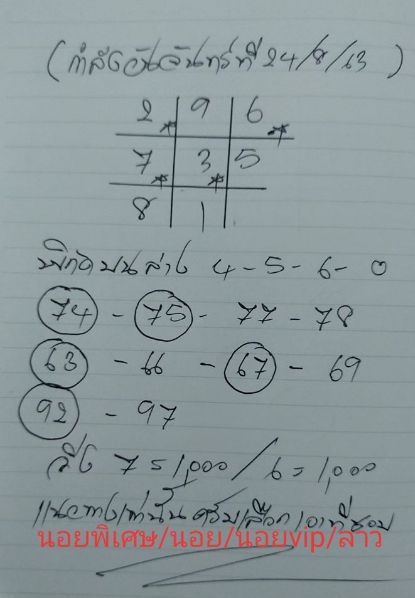 (กำลังวันจันทร์ที่ 24/8/63)
2 9 6
7 3 5
8 1
พิกัดบนล่าง 4-5-6-0
74 - 75 - 77 - 78
63 - 66 - 67 - 69
92 - 97
วิ่ง 7=1,000/6=1,000
แนวทางเท่านั้นครับเลือกเอาที่ชอบ
นอยพิเศษ/นอย/นอยvip/ลาว